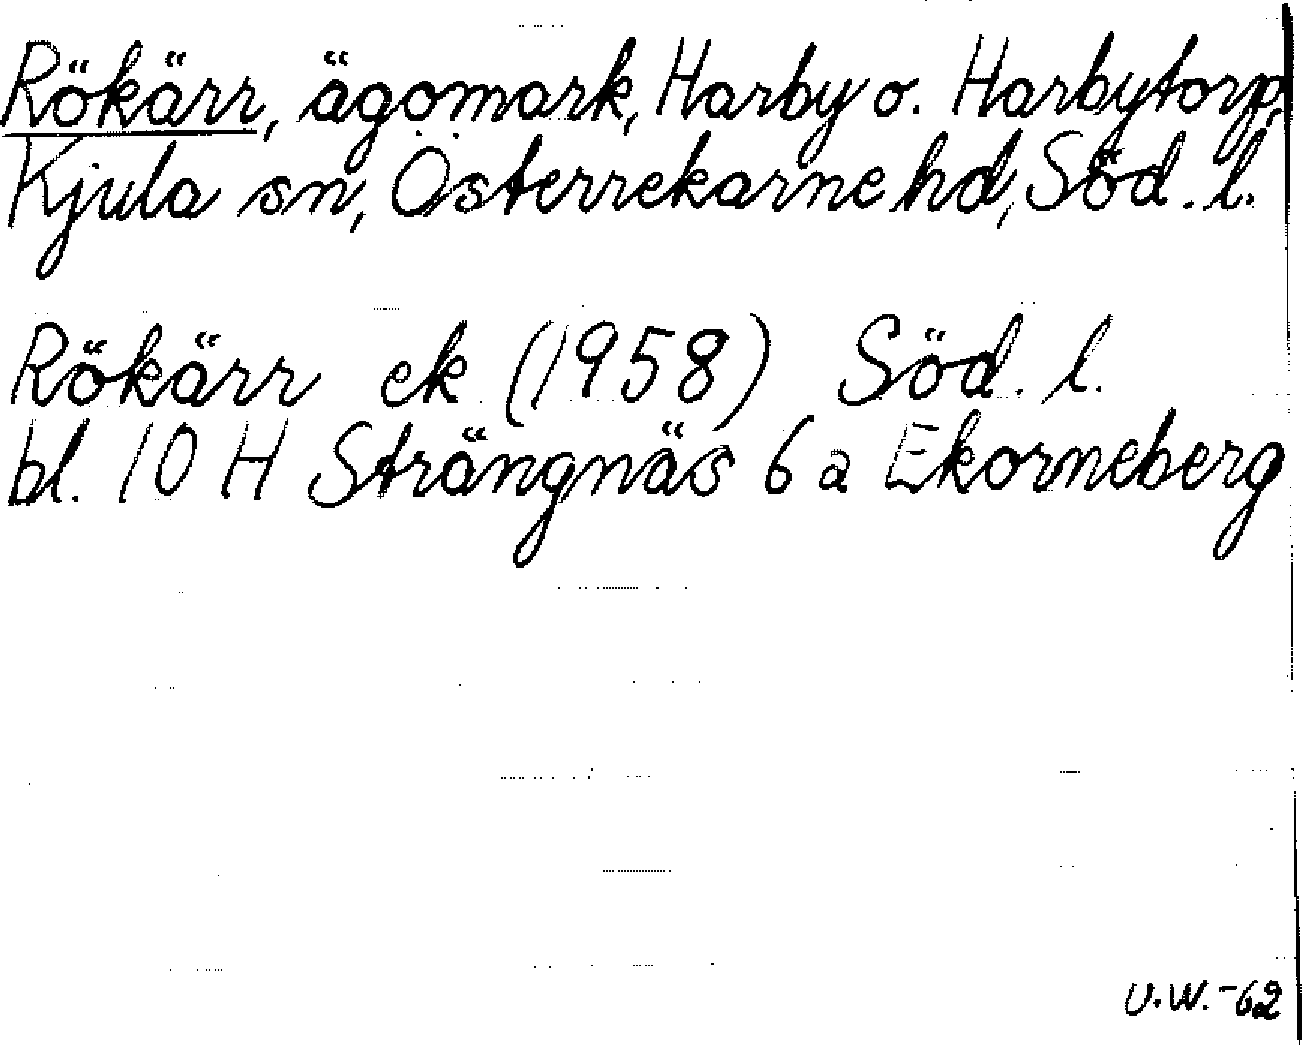 Rökärr, ägomark, Harby o. Harbytorp,
Kjula sn, Österrekarne hd, Söd. l.
Rökärr ek (1958) Söd. l.
bl. 10 H Strängnäs 6 a Ekorneberg
U.W.-62